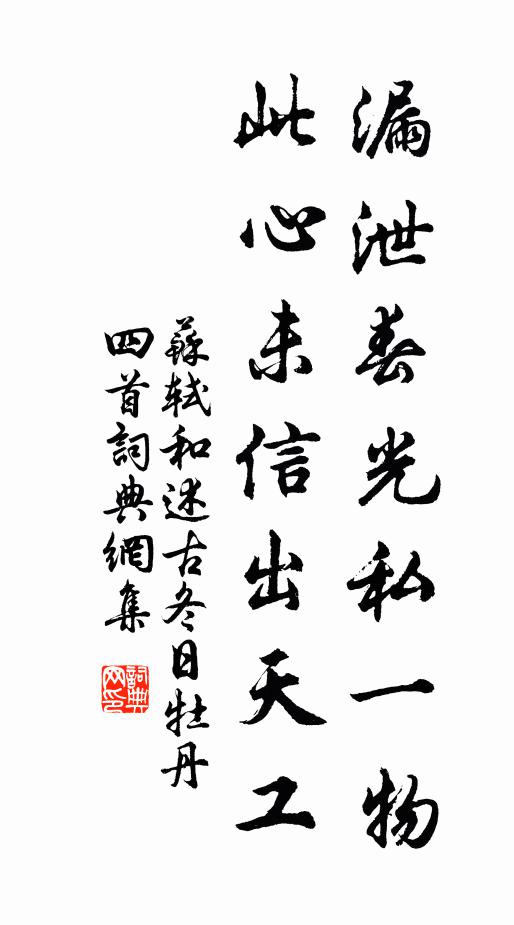 漏泄春光私一物
此心未信出天工
蘇軾和述古冬日牡丹
四首詞典網集
詞典网印